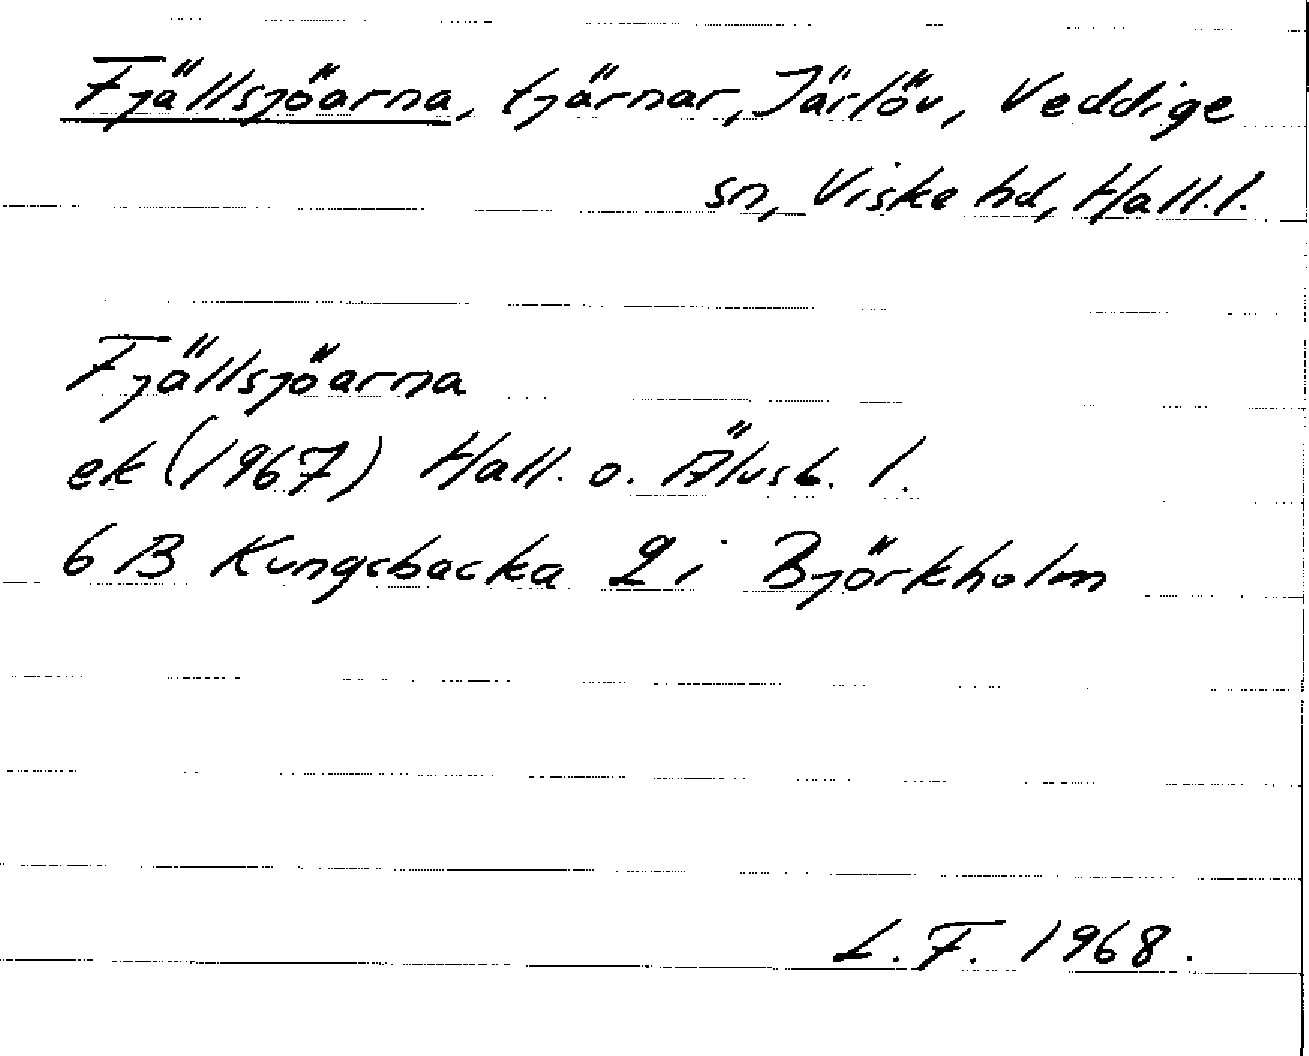 Fjällsjöarna, tjärnar, Järlöv, Veddige
sn, Viske hd, Hall. l.
Fjällsjöarna
ek (1967) Hall. o. Älvsb. l.
6 B Kungsbacka 2 i Björkholm
L. F. 1968.